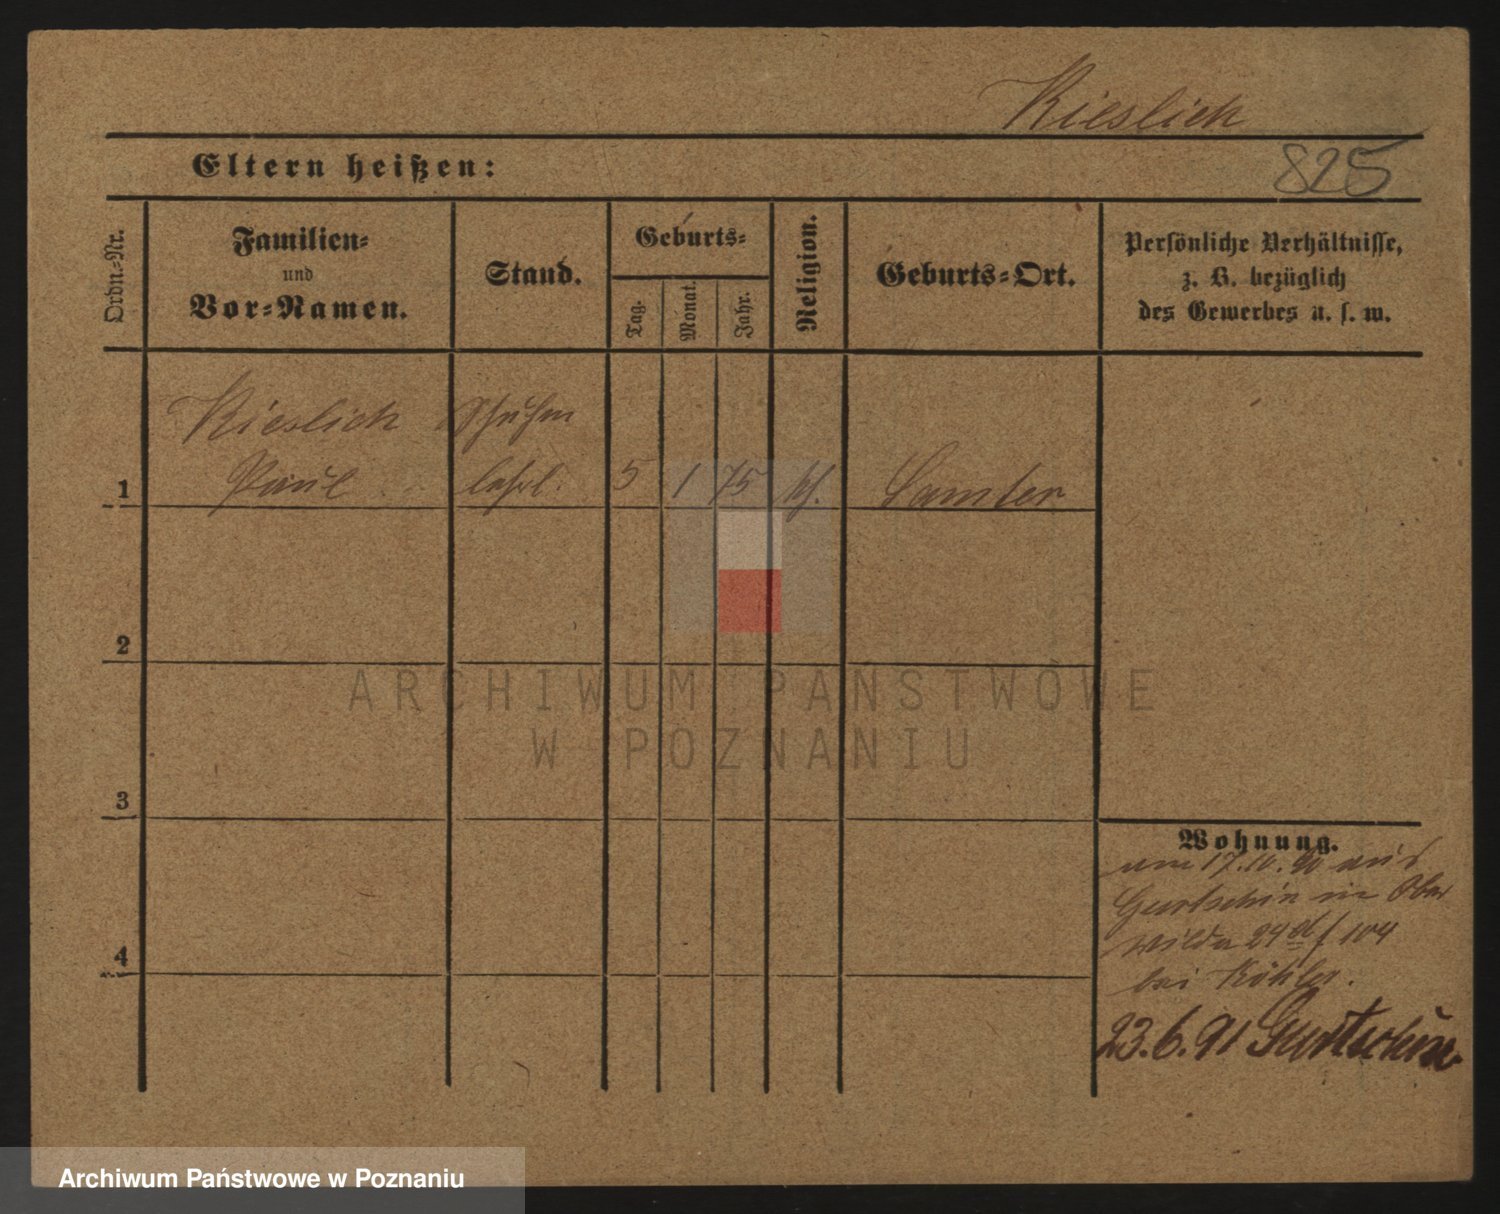 Kieslich
825
Eltern heißen:
Ordn.-Nr.
Familien-
und
Vor-Namen.
Stand.
Geburts-
Tag.
Monat.
Jahr.
Religion.
Geburts-Ort.
Persönliche Verhältnisse,
z. B. bezüglich
des Gewerbes u. s. w.
Kieslich
Paul
lehrl.
1
5 1 75 kt. Samter
2
3
4
ARCHIWUM PAŃSTWOWE
W POZNANIU
Wohnung.
am 17.10.90 aus
Gurtschin in Ober
Wilda 24 104
bei Köhler.
23.6.91 Gurtschin
Archiwum Państwowe w Poznaniu